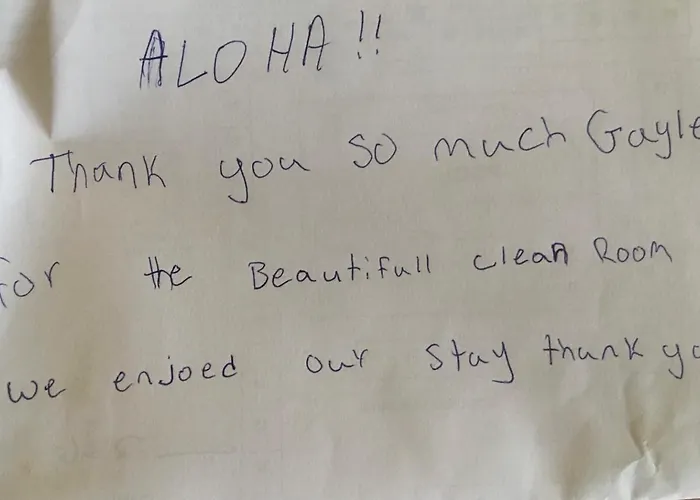 ALOHA!!
Thank you so much Gayle
for the Beautifull clean Room
we enjoed our stay thank yo